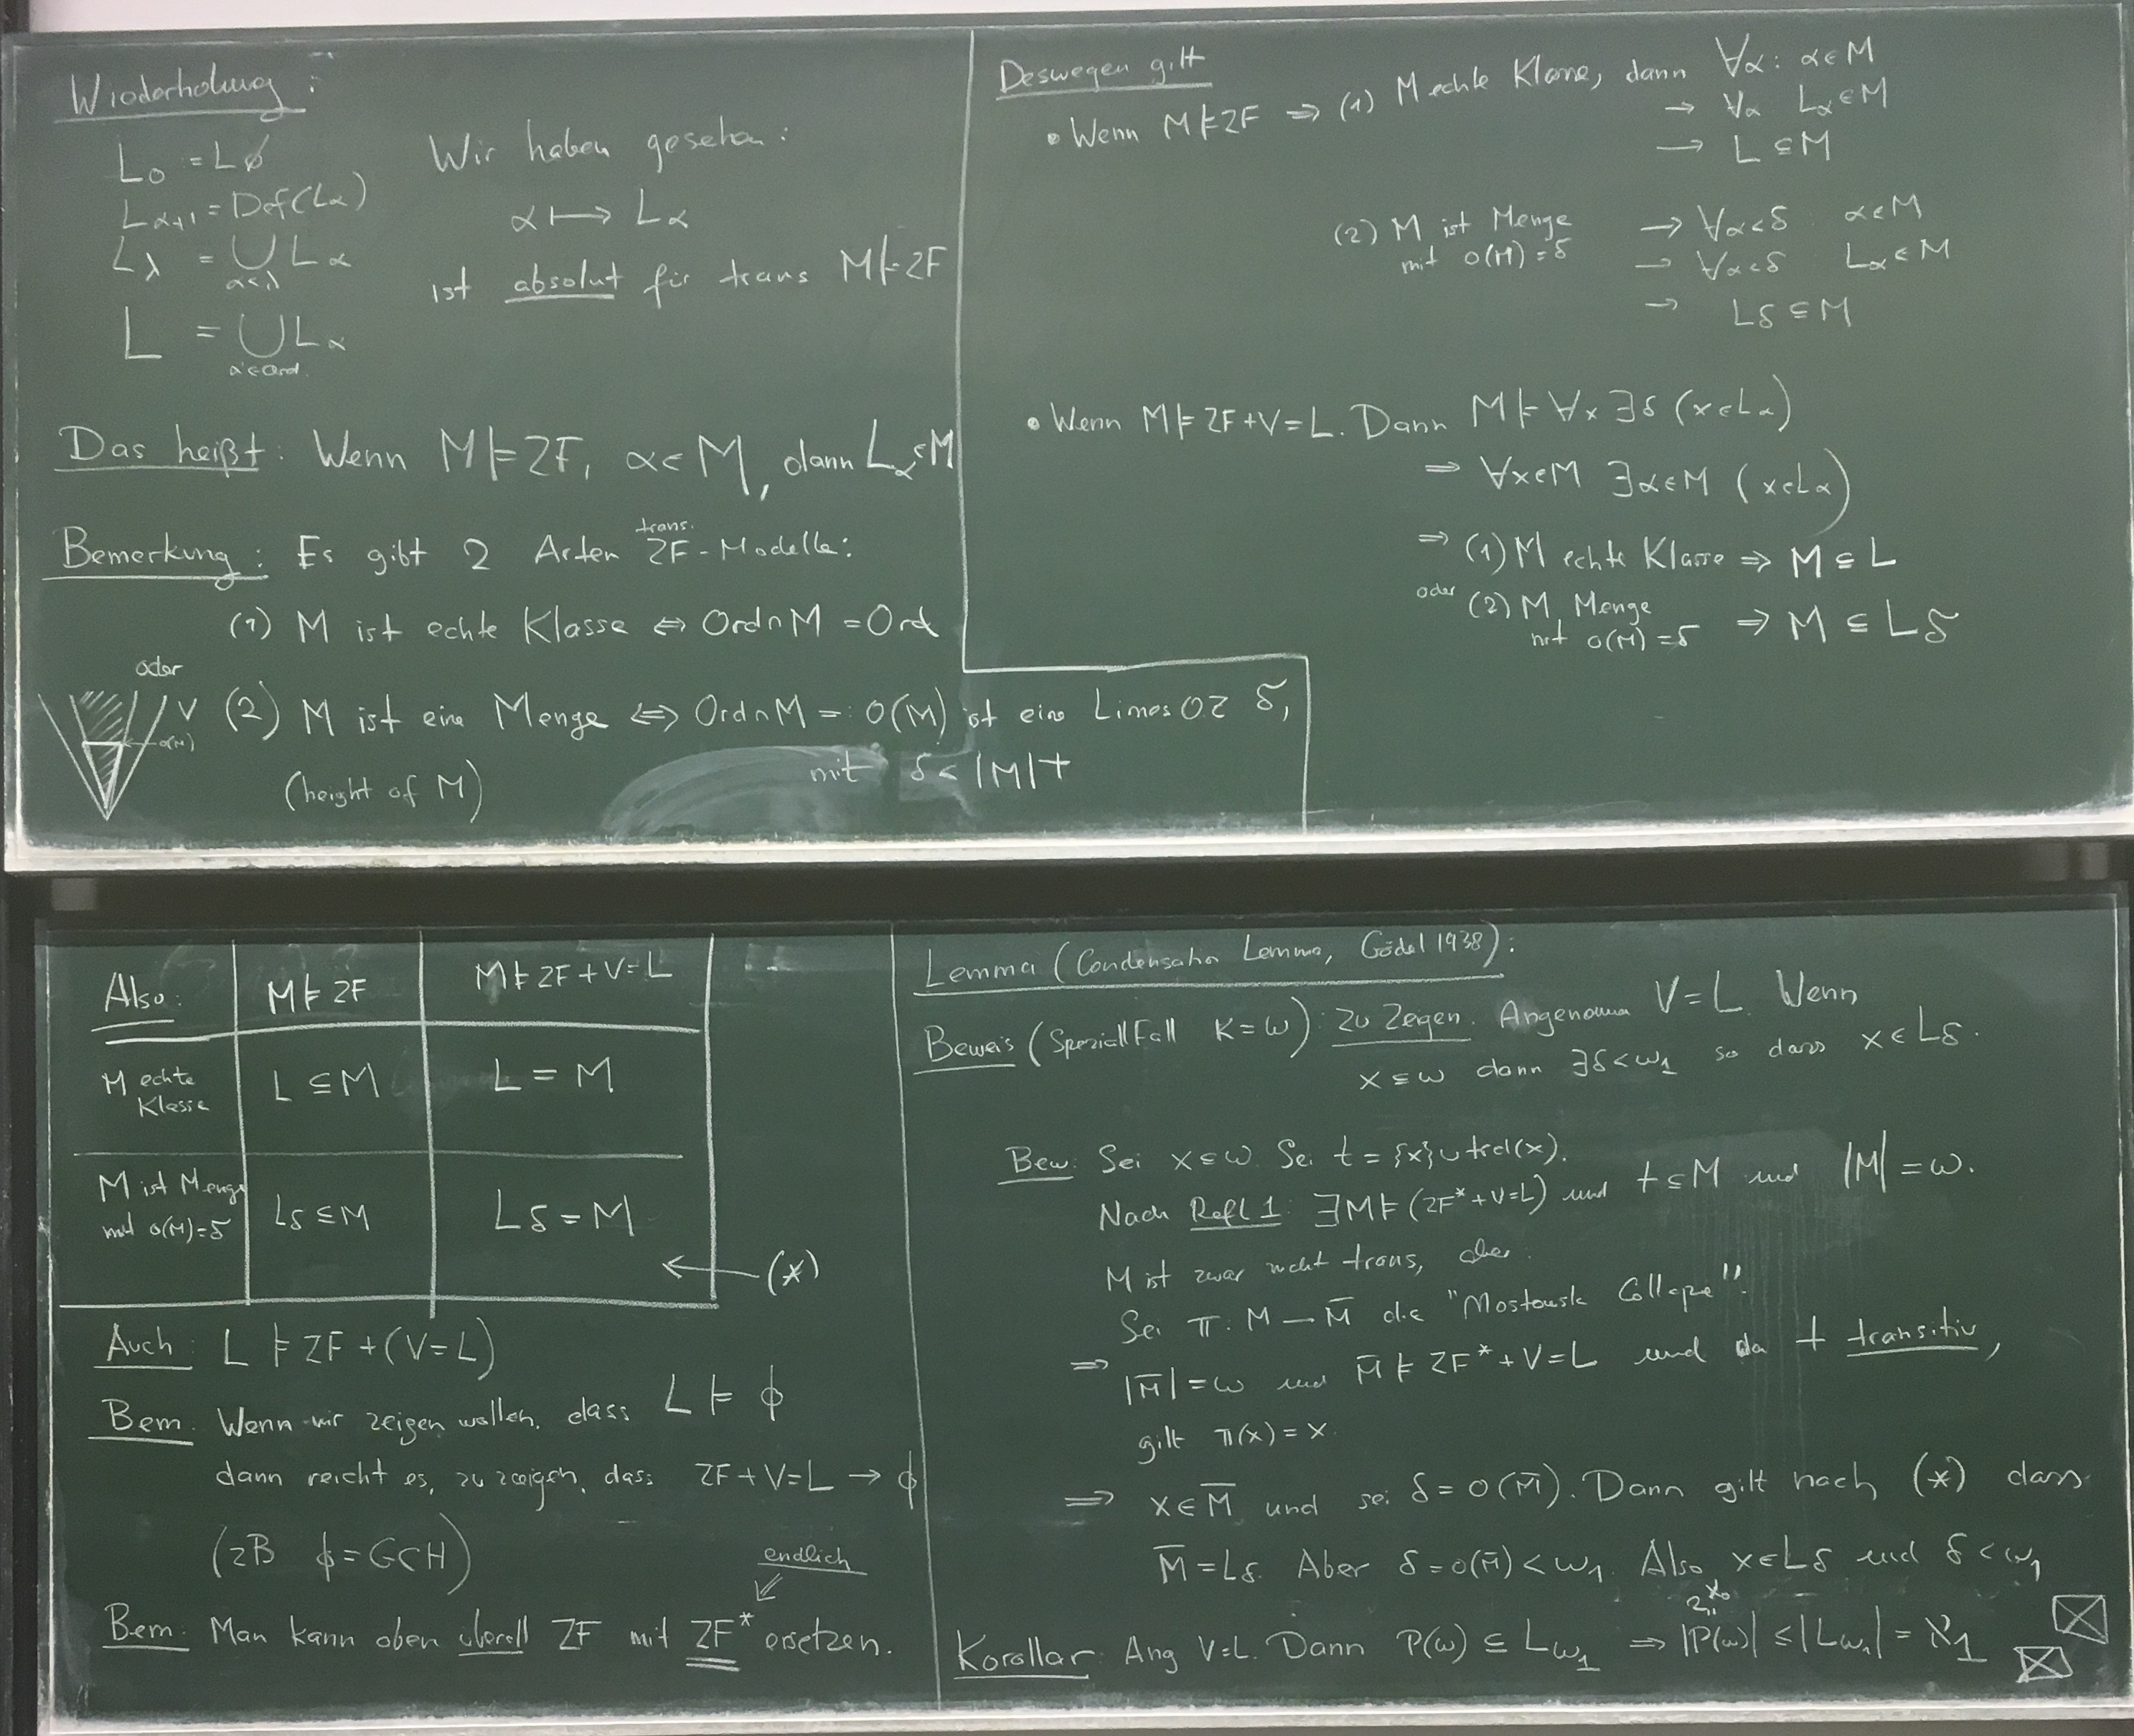 Wiederholung:
L₀ = L∅
L_{α+1} = Def(L_α)
L_λ = ⋃_{α<λ} L_α
L = ⋃_{α∈Ord.} L_α
Wir haben gesehen:
α ⟼ L_α
ist absolut für trans M ⊨ ZF
Das heißt: Wenn M ⊨ ZF, α∈M, dann L_α∈M
Bemerkung: Es gibt 2 Arten trans. ZF-Modelle:
(1) M ist echte Klasse ⇔ Ord∩M = Ord
oder
(2) M ist eine Menge ⇔ Ord∩M =: o(M) ist eine Limes OZ δ,
(height of M) mit δ < |M|+
V
o(M)
Deswegen gilt
• Wenn M ⊨ ZF ⇒ (1) M echte Klasse, dann ∀α: α∈M
→ ∀α L_α∈M
→ L ⊆ M
(2) M ist Menge → ∀α<δ α∈M
mit o(M) = δ → ∀α<δ L_α∈M
→ Lδ ⊆ M
• Wenn M ⊨ ZF+V=L. Dann M ⊨ ∀x ∃δ (x∈L_α)
⇒ ∀x∈M ∃α∈M (x∈L_α)
⇒ (1) M echte Klasse ⇒ M ⊆ L
oder (2) M Menge
mit o(M) = δ ⇒ M ⊆ Lδ
Also: M ⊨ ZF M ⊨ ZF + V=L
M echte Klasse L ⊆ M L = M
M ist Menge mit o(M)=δ Lδ ⊆ M Lδ = M
← (*)
Auch: L ⊨ ZF + (V=L)
Bem. Wenn wir zeigen wollen, dass L ⊨ ϕ
dann reicht es, zu zeigen, dass ZF+V=L → ϕ
(zB ϕ = GCH)
endlich
Bem: Man kann oben überall ZF mit ZF* ersetzen.
Lemma (Condensation Lemma, Gödel 1938):
Beweis (Spezial Fall K=ω): Zu Zeigen. Angenomm V=L. Wenn
x ⊆ ω dann ∃δ<ω₁ so dass x∈Lδ.
Bew: Sei x⊆ω. Sei t = {x}∪trcl(x).
Nach Refl 1: ∃M ⊨ (ZF*+V=L) und t⊆M und |M| = ω.
M ist zwar nicht trans, aber:
Sei π: M — M̄ die "Mostowsk Collapse".
⇒ |M̄| = ω und M̄ ⊨ ZF*+V=L und da t transitiv,
gilt π(x) = x.
⇒ x∈M̄ und sei δ = o(M̄). Dann gilt nach (*) dass
M̄ = Lδ. Aber δ = o(M̄) < ω₁. Also x∈Lδ und δ<ω₁
Korollar: Ang V=L. Dann P(ω) ⊆ L_{ω₁} ⇒ 2^{ℵ₀} = |P(ω)| ≤ |L_{ω₁}| = ℵ₁